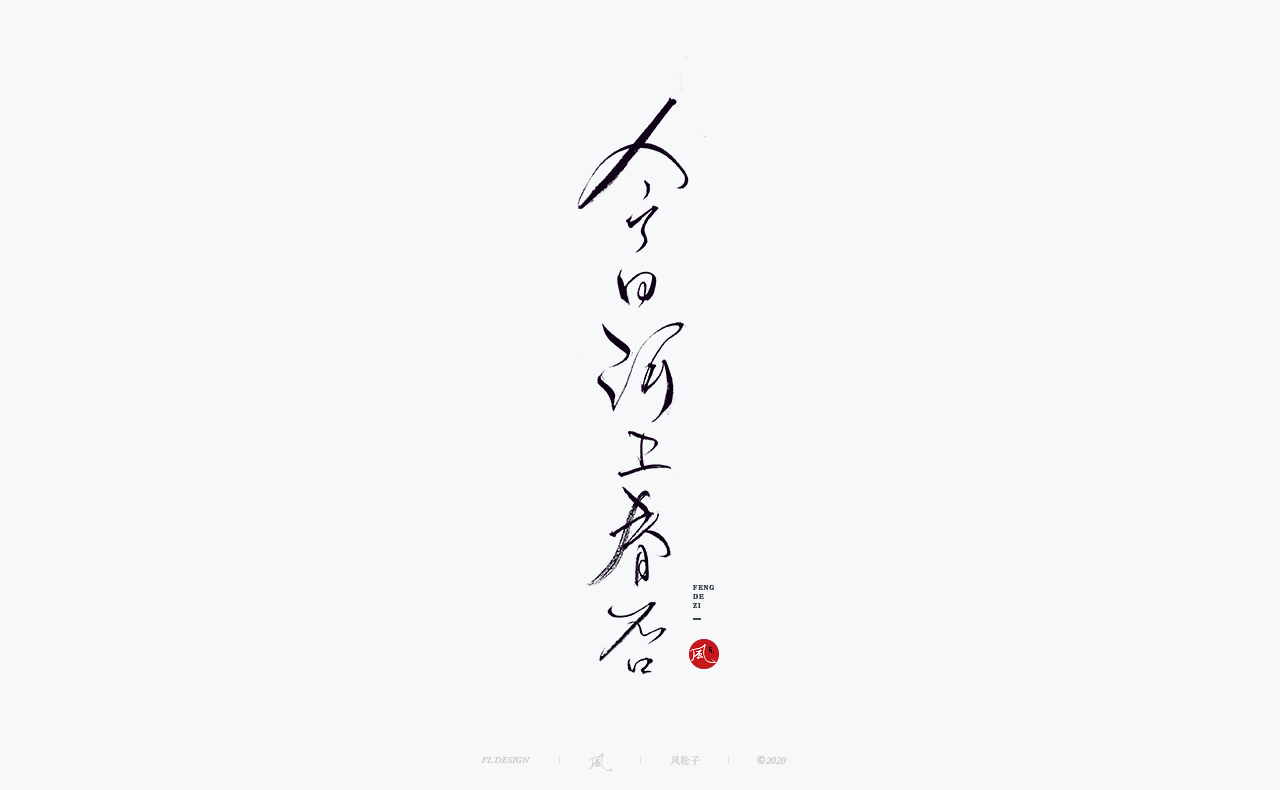 今日河上春否
FENG
DE
ZI
風
FL.DESIGN
風
风轮子
©2020